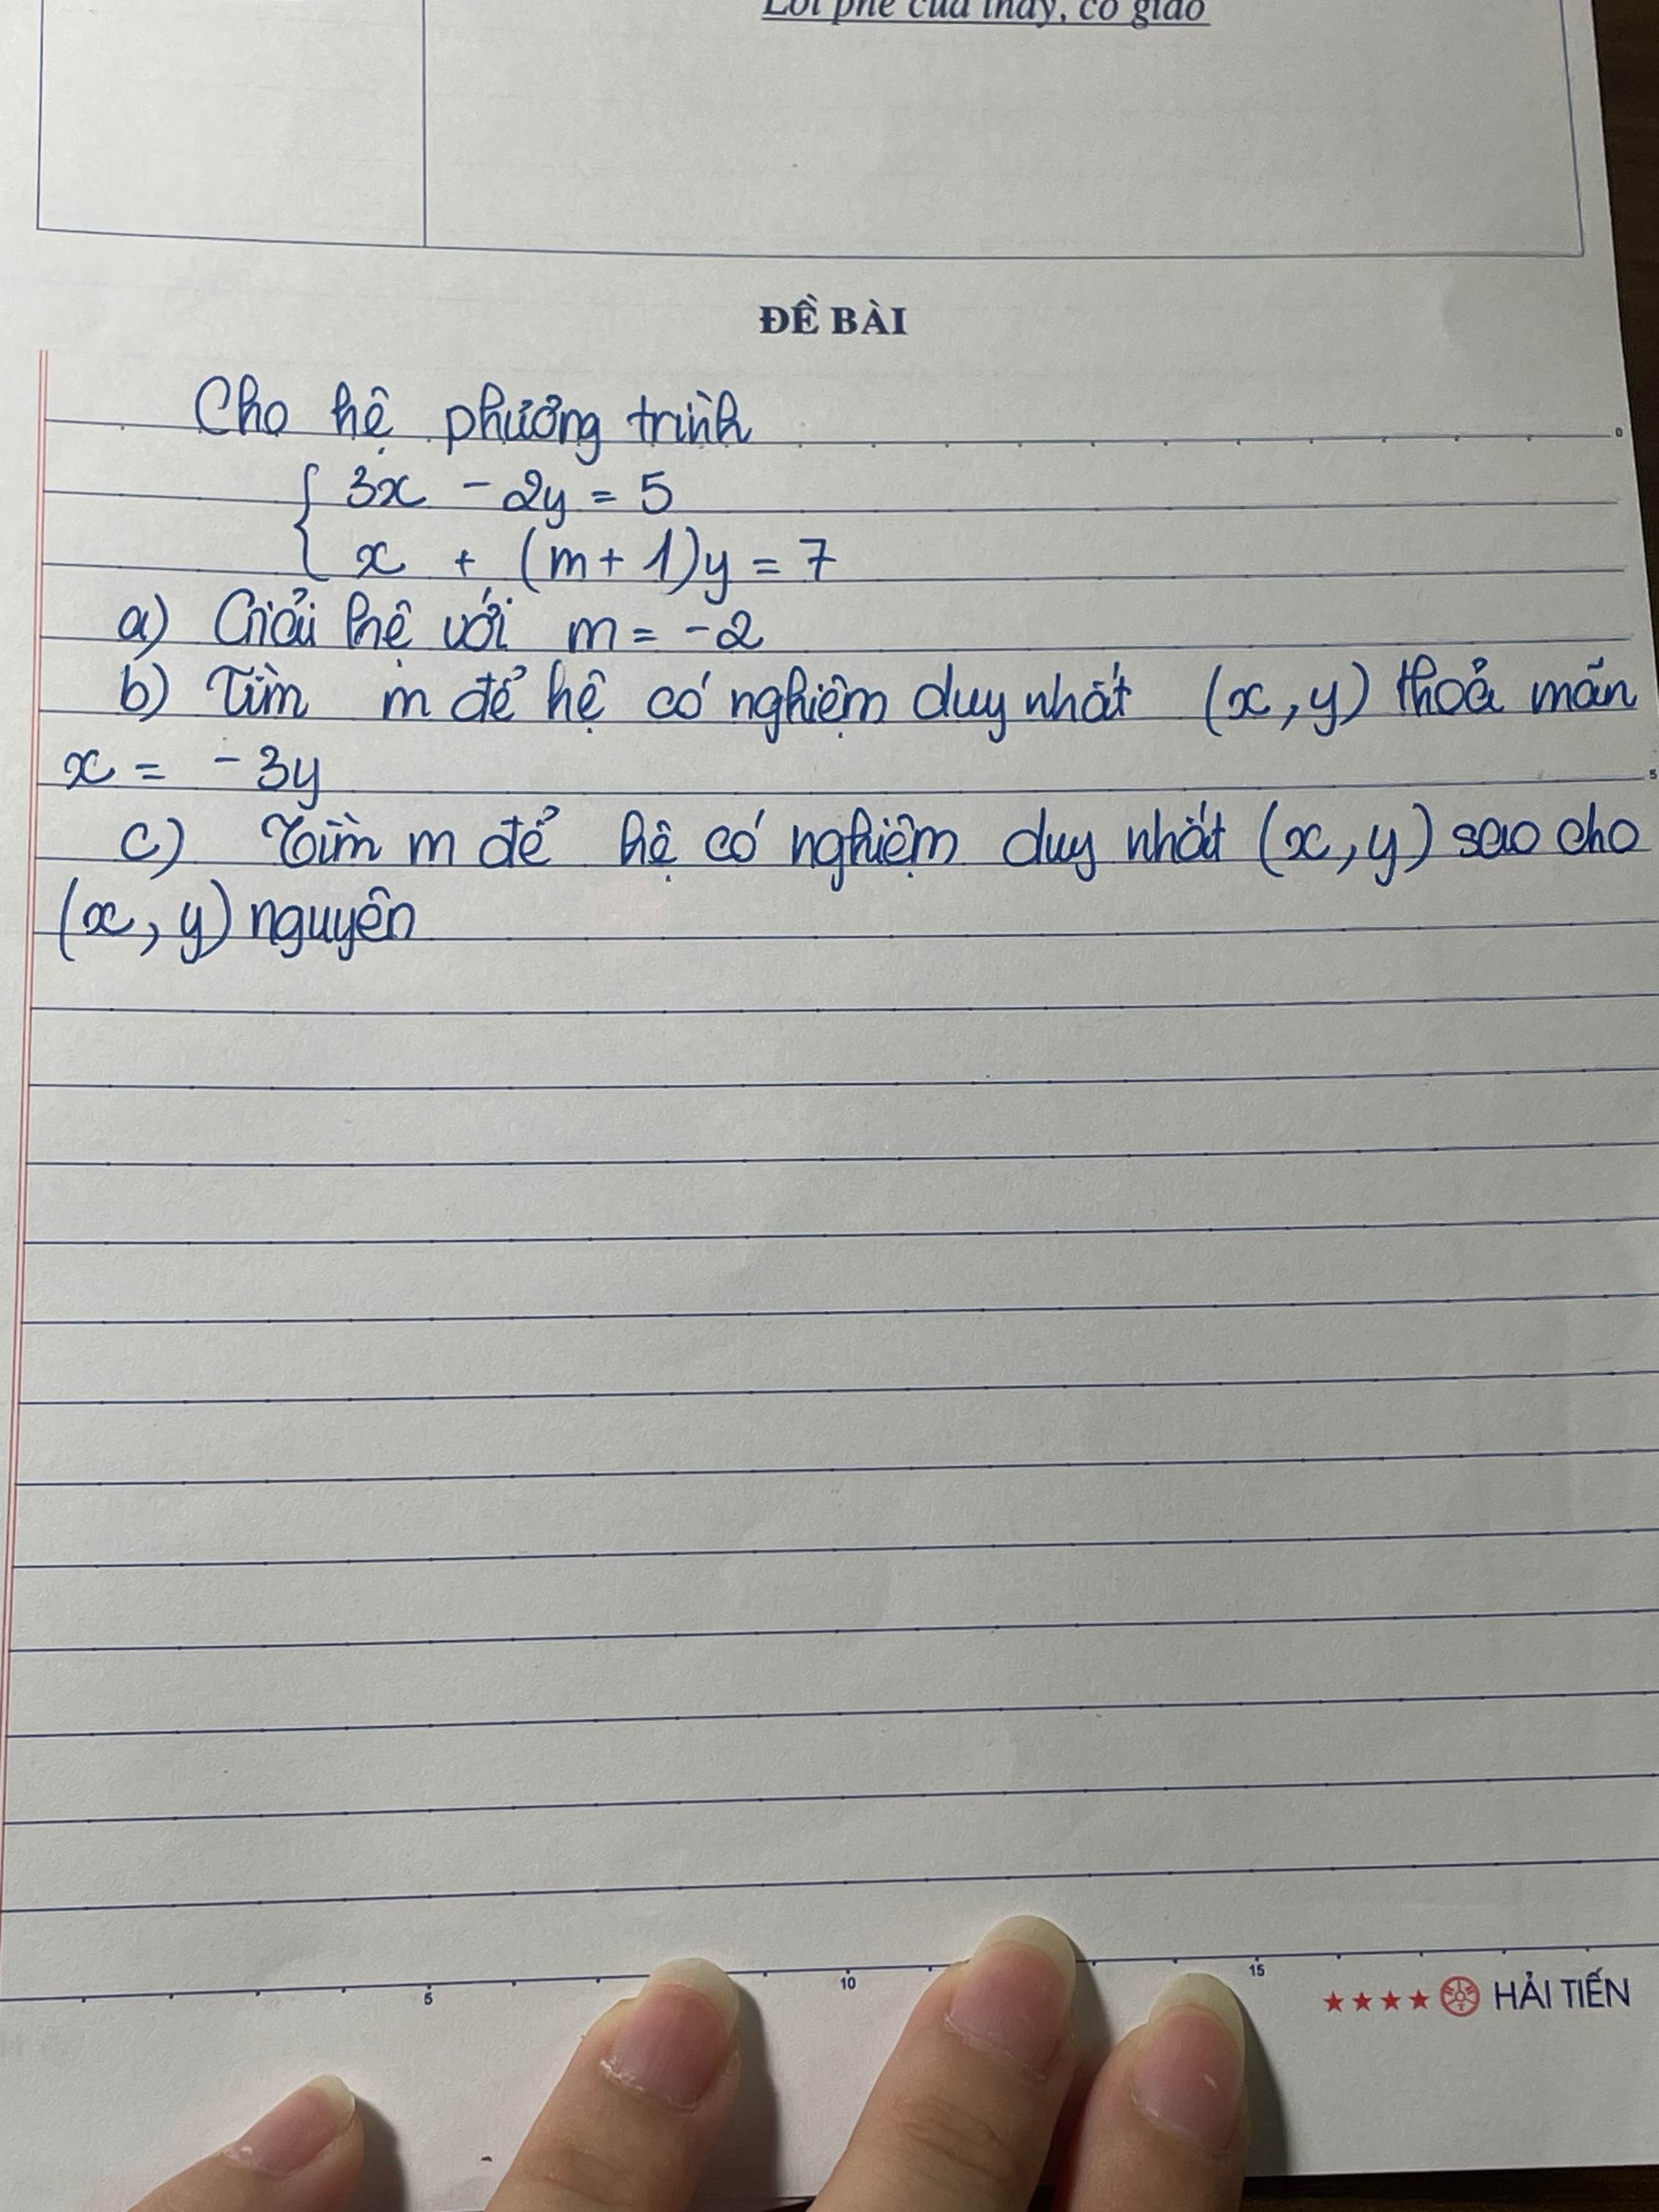 Lời phê của thầy, cô giáo
ĐỀ BÀI
Cho hệ phương trình
{ 3x - 2y = 5
x + (m + 1)y = 7
a) Giải hệ với m = -2
b) Tìm m để hệ có nghiệm duy nhất (x, y) thoả mãn
x = -3y
c) Tìm m để hệ có nghiệm duy nhất (x, y) sao cho
(x, y) nguyên
0
5
5 10 15
★★★★ HẢI TIẾN